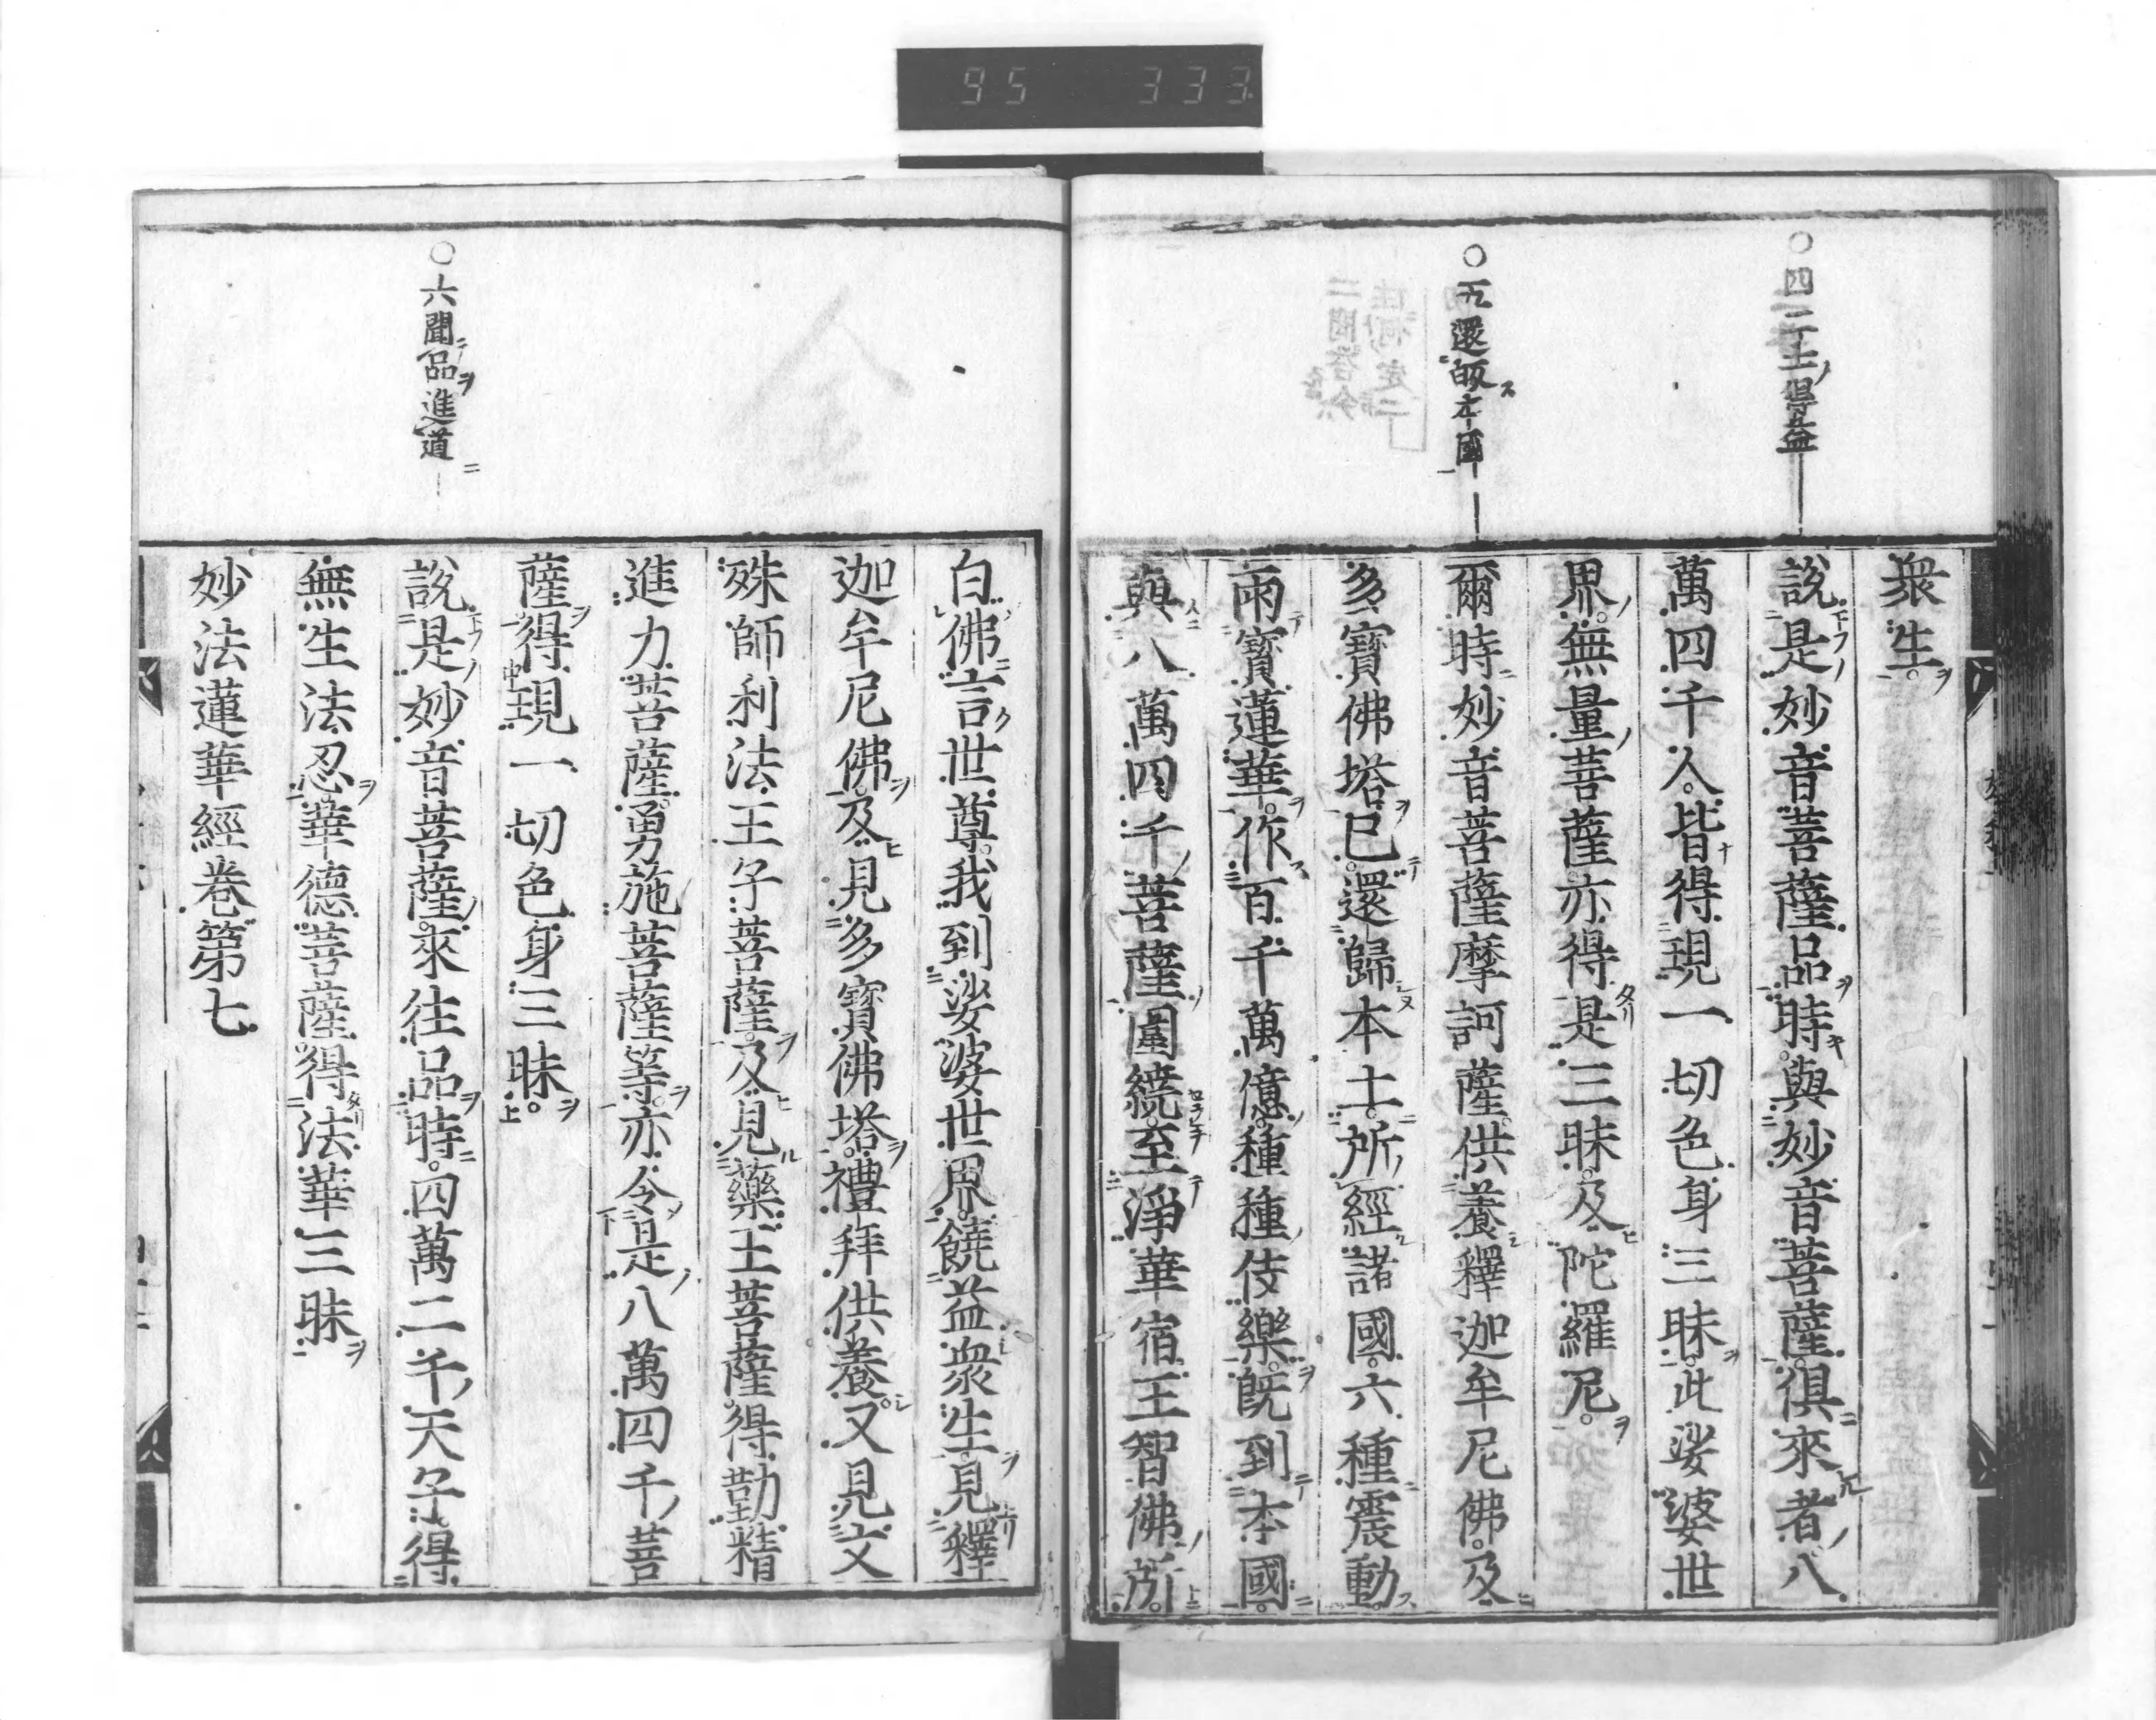 95 333
○四二土得益
○五還皈本國
衆生。
說是妙音菩薩品時。與妙音菩薩。俱來者。八
萬四千人。皆得現一切色身三昧。此娑婆世
界。無量菩薩。亦得是三昧。及陀羅尼。
爾時妙音菩薩摩訶薩。供養釋迦牟尼佛。及
多寶佛塔已。還歸本土。所經諸國。六種震動。
雨寶蓮華。作百千萬億。種種伎樂。旣到本國。
與八萬四千菩薩。圍繞。至淨華宿王智佛所。
○六聞品進道
白佛言世尊。我到娑婆世界。饒益衆生。見釋
迦牟尼佛。及見多寶佛塔。禮拜供養。又見文
殊師利法王子菩薩。及見藥王菩薩。得勤精
進力菩薩。勇施菩薩等。亦令是八萬四千菩
薩。得現一切色身三昧。
說是妙音菩薩。來往品時。四萬二千天子。得
無生法忍。華德菩薩。得法華三昧
妙法蓮華經卷第七